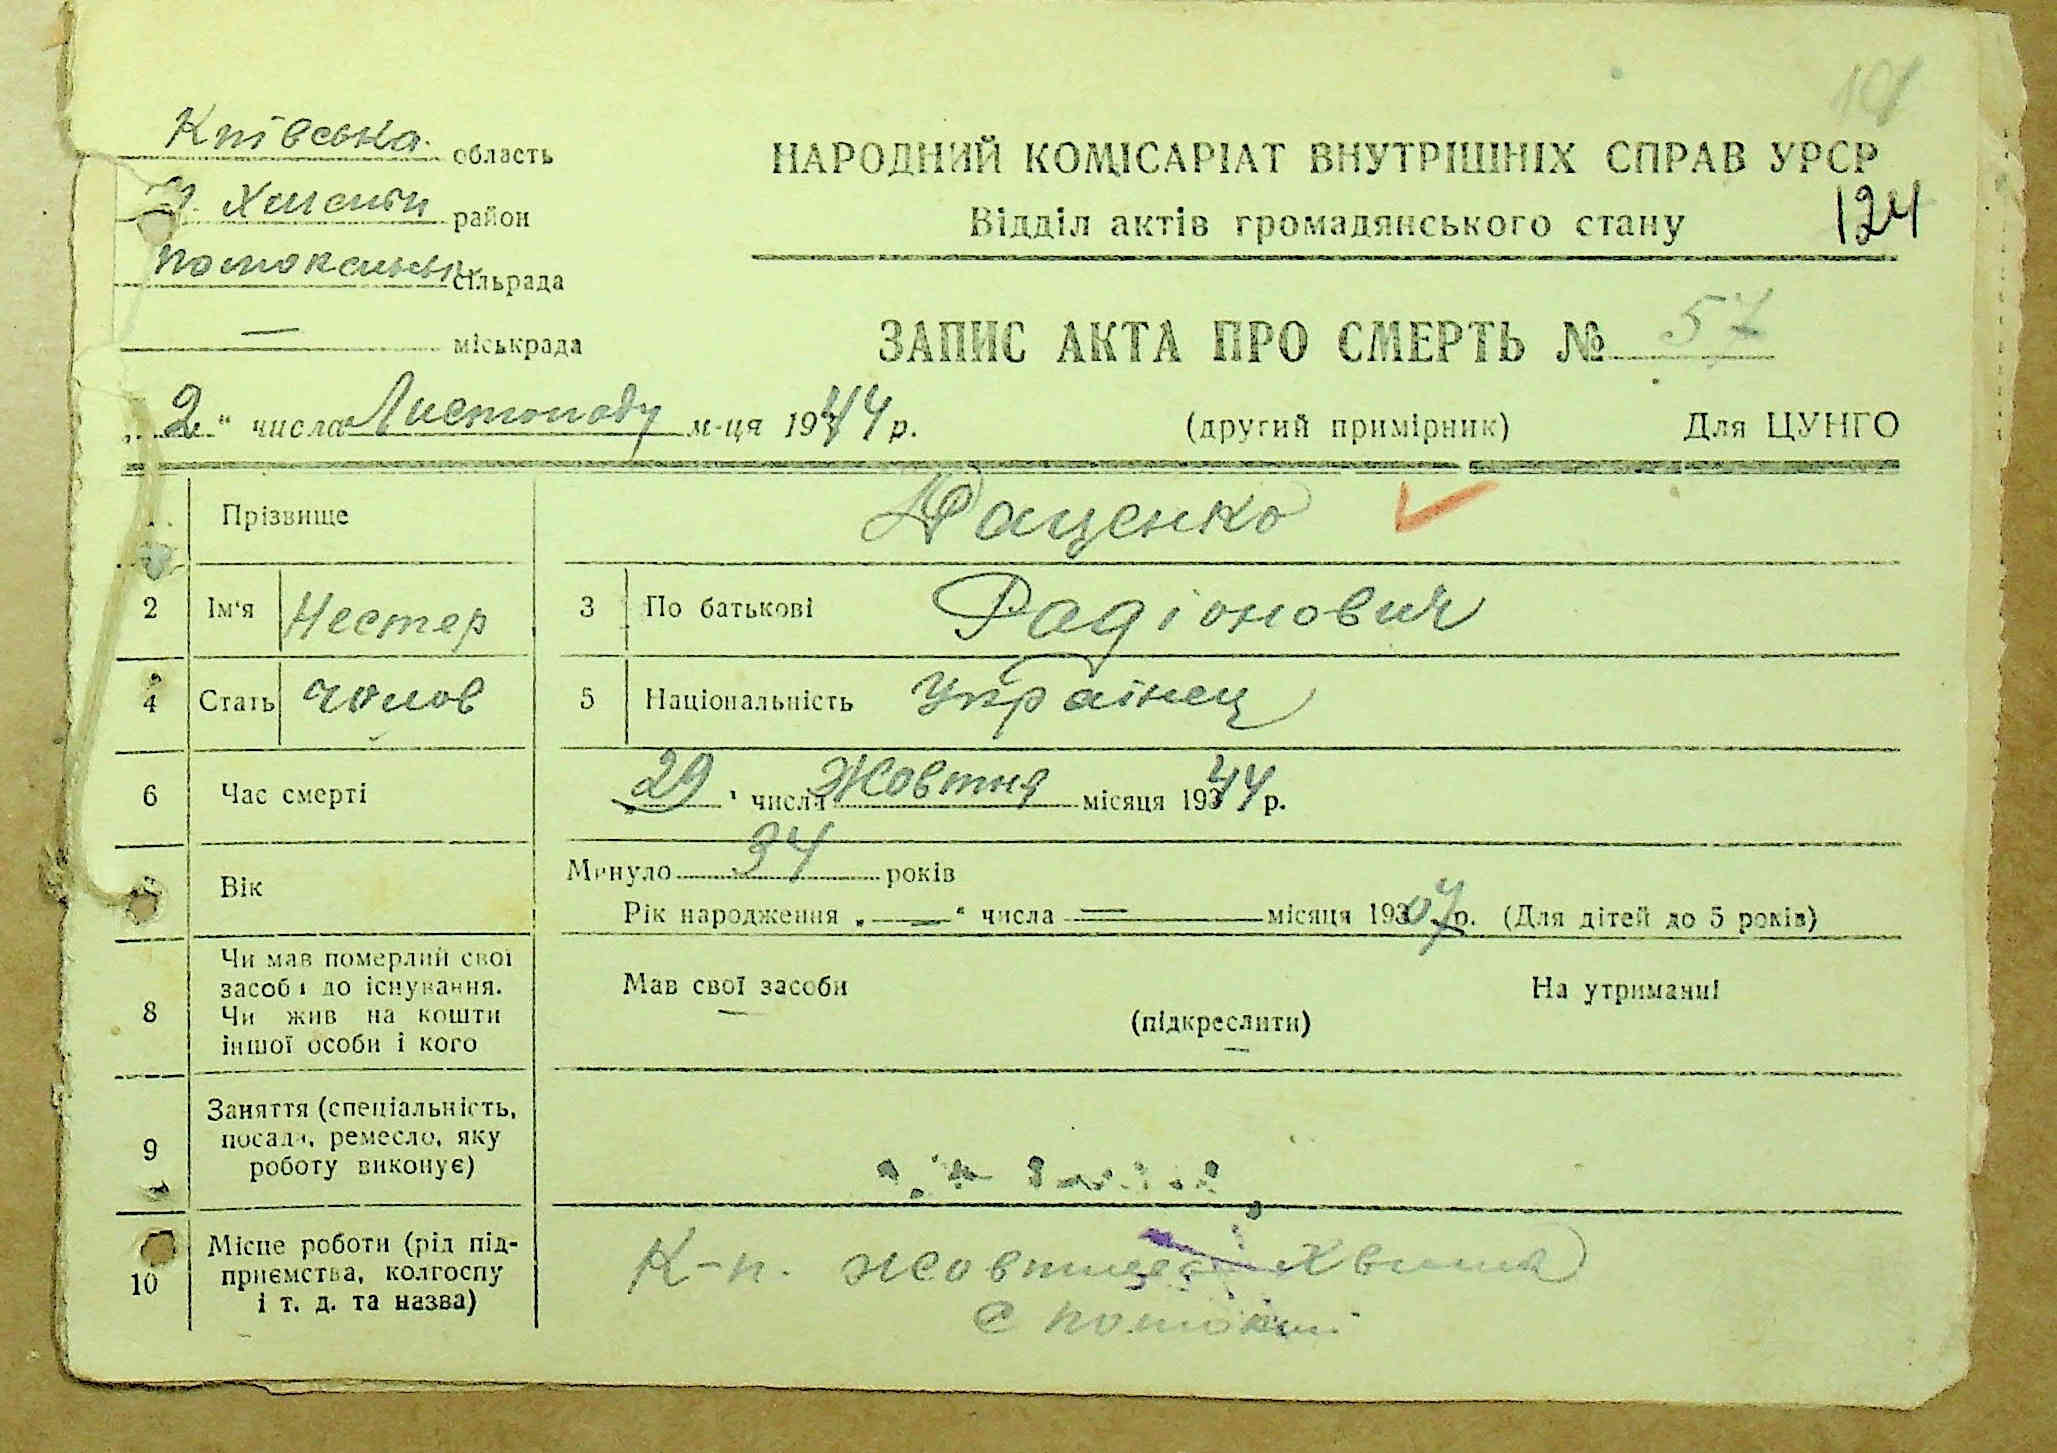 124
Київська область
район
сільрада
— міськрада
НАРОДНИЙ КОМІСАРІАТ ВНУТРІШНІХ СПРАВ УРСР
Відділ актів громадянського стану
ЗАПИС АКТА ПРО СМЕРТЬ № 57
„2“ числа Листопаду м-ця 1944 р.
(другий примірник) Для ЦУНГО
Прізвище Даценко
2 Ім'я Нестер 3 По батькові Радіонович
4 Стать чолов 5 Національність Українец
6 Час смерті „29“ числа Жовтня місяця 1944 р.
Вік Минуло 34 років
Рік народження „—“ числа — місяця 1907 р. (Для дітей до 5 років)
8 Чи мав померлий свої
засоби до існування.
Чи жив на кошти
іншої особи і кого
Мав свої засоби На утриманні
(підкреслити)
9 Заняття (спеціальність,
посада, ремесло, яку
роботу виконує)
10 Місце роботи (рід під-
приємства, колгоспу
і т. д. та назва)
К-п. Хвиля
с